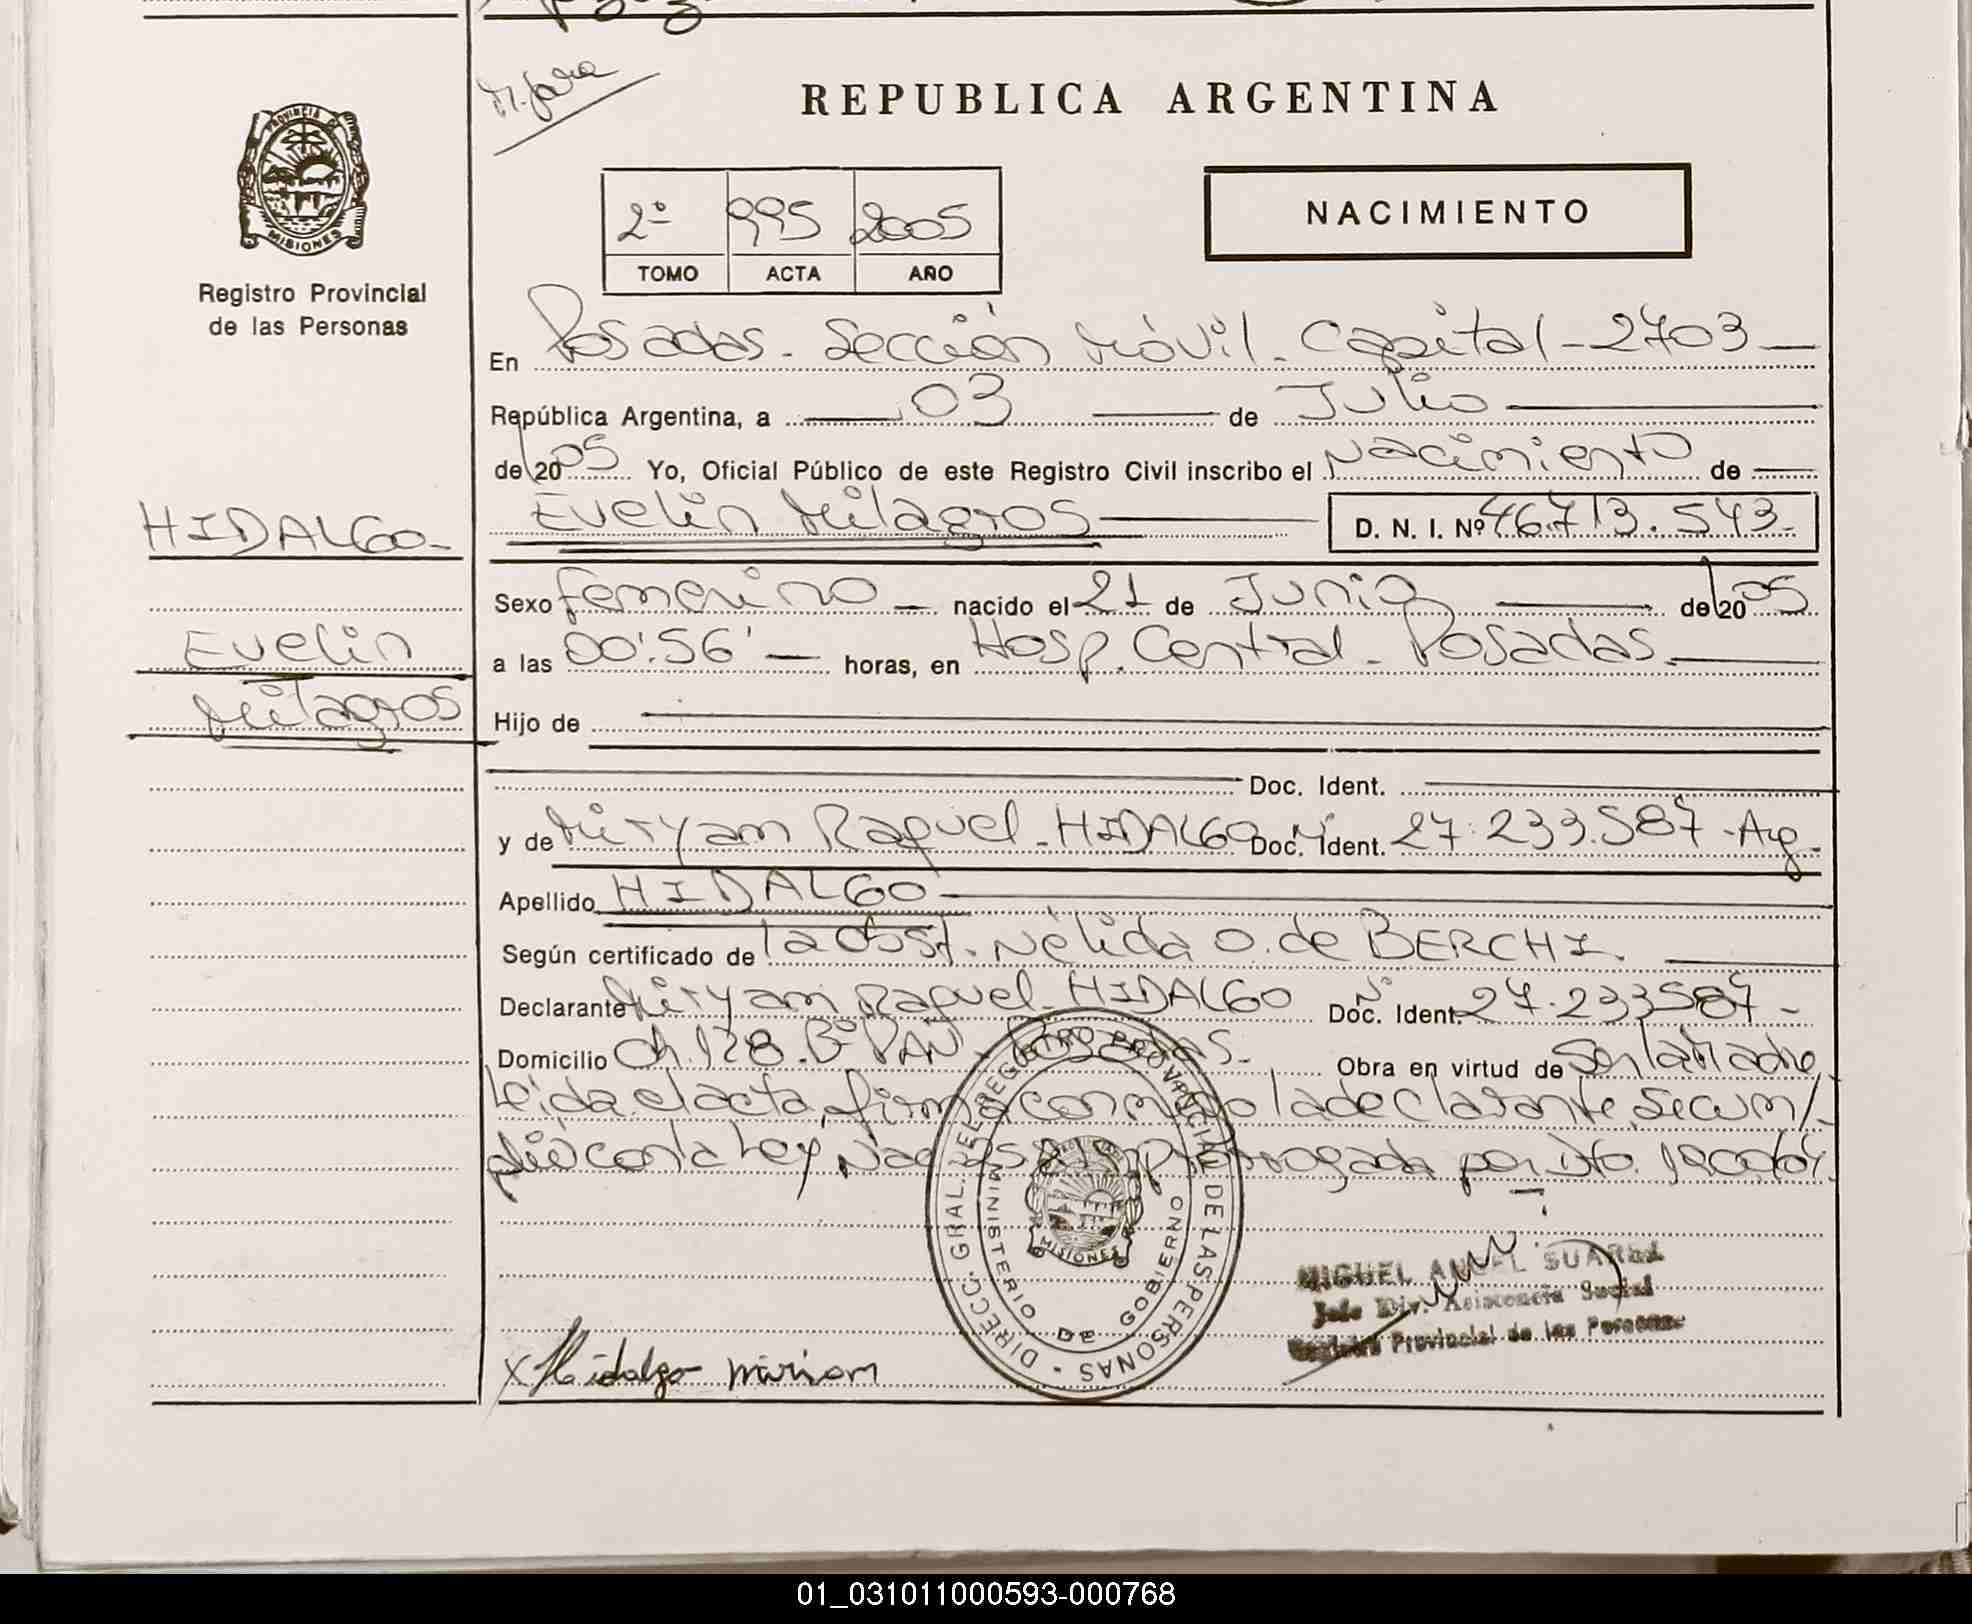 REPUBLICA ARGENTINA
PROVINCIA DE
MISIONES
Registro Provincial
de las Personas
2º 995 2005
TOMO ACTA AÑO
NACIMIENTO
En Posadas - Sección Móvil - Capital - 2703
República Argentina, a 03 de Julio
de 2005 Yo, Oficial Público de este Registro Civil inscribo el Nacimiento de
HIDALGO
Evelin Milagros D. N. I. Nº 46.713.543.
Sexo femenino nacido el 21 de Junio de 2005
Evelin
Milagros
a las 00:56' horas, en Hosp. Central - Posadas
Hijo de
Doc. Ident.
y de Miryam Raquel - HIDALGO Doc. Ident. Nº 27.233.587 - Arg
Apellido HIDALGO
Según certificado de la Obst. Nélida O. de BERCHI
Declarante Miryam Raquel - HIDALGO Doc. Ident. Nº 27.233587 -
Domicilio Ch. 128. Bº Posadas Obra en virtud de Ser la Madre
Leida el acta, firma conmigo la declarante, se cum/
plió con la Ley prorrogada por
DIRECC. GRAL. DEL REGISTRO PROVINCIAL DE LAS PERSONAS
MINISTERIO DE GOBIERNO
MISIONES
MIGUEL ANGEL SUAREZ
Jefe Div. Asistencia Social
Registro Provincial de las Personas
x Hidalgo miriam
01_031011000593-000768